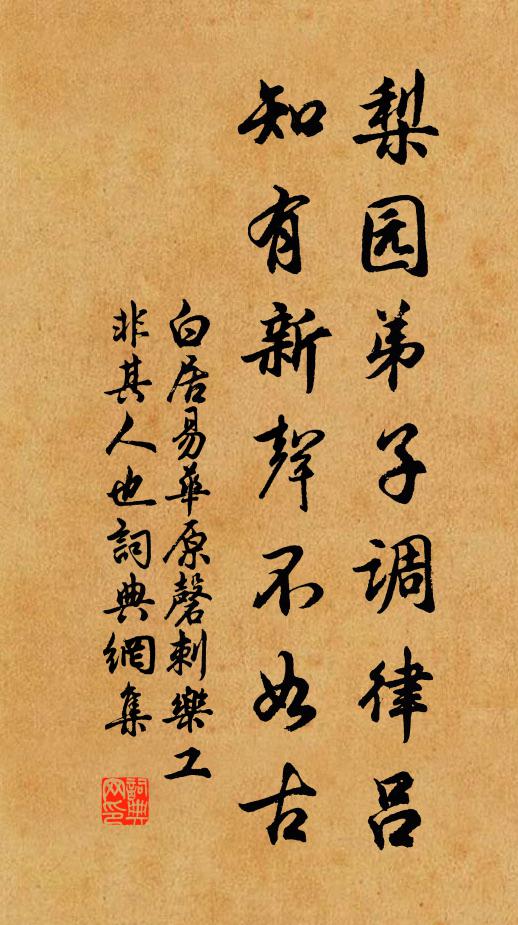 梨园弟子调律吕
知有新聲不如古
白居易華原磬刺樂工
非其人也詞典網集
詞典网印